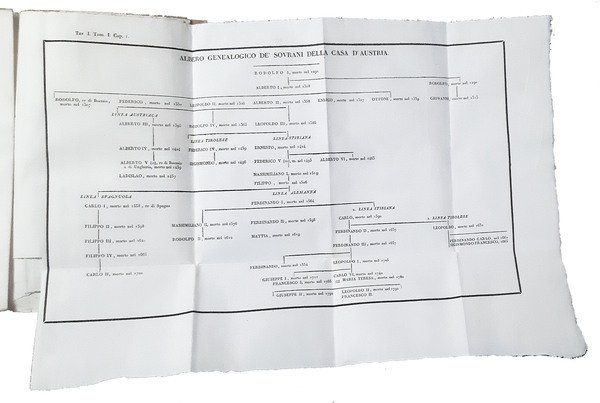 Tav. I. Tom. I. Cap. 1.
ALBERO GENEALOGICO DE' SOVRANI DELLA CASA D'AUSTRIA.
RODOLFO I, morto nel 1291
ALBERTO I, morto nel 1308
RODOLFO, morto nel 1290
RODOLFO, re di Boemia, morto nel 1307
FEDERICO, morto nel 1330
LEOPOLDO II, morto nel 1326
ALBERTO II, morto nel 1358
ENRICO, morto nel 1327
OTTONE, morto nel 1339
GIOVANNI, morto nel 1313
LINEA AUSTRIACA
ALBERTO III, morto nel 1395
RODOLFO IV, morto nel 1365
LEOPOLDO III, morto nel 1386
LINEA TIROLESE
LINEA STIRIANA
ALBERTO IV, morto nel 1404
FEDERICO IV, morto nel 1439
ERNESTO, morto nel 1424
ALBERTO V re di Boemia e di Ungheria, morto nel 1439
SIGISMONDO, morto nel 1496
FEDERICO V morto nel 1493
ALBERTO VI, morto nel 1463
LADISLAO, morto nel 1457
MASSIMILIANO I, morto nel 1519
FILIPPO, morto nel 1506
LINEA SPAGNUOLA
LINEA ALEMANNA
CARLO I, morto nel 1558, re di Spagna
FERDINANDO I, morto nel 1564
1. LINEA STIRIANA
2. LINEA TIROLESE
FILIPPO II, morto nel 1598
MASSIMILIANO II, morto nel 1576
FERDINANDO II, morto nel
CARLO, morto nel 1590
LEOPOLDO, morto nel
FILIPPO III, morto nel 1621
RODOLFO II, morto nel 1612
MATTIA, morto nel 1619
FERDINANDO II, morto nel 1637
FERDINANDO CARLO,
SIGISMONDO FRANCESCO,
FILIPPO IV, morto nel 1665
FERDINANDO III, morto nel 1657
CARLO II, morto nel 1700
FERDINANDO, morto nel 1654
LEOPOLDO I, morto nel
GIUSEPPE I, morto nel 1711
CARLO VI, morto nel 1740
FRANCESCO I, morto nel 1765
MARIA TERESA, morta nel 1780
GIUSEPPE II, morto nel 1790
LEOPOLDO II, morto nel 1792
FRANCESCO II.